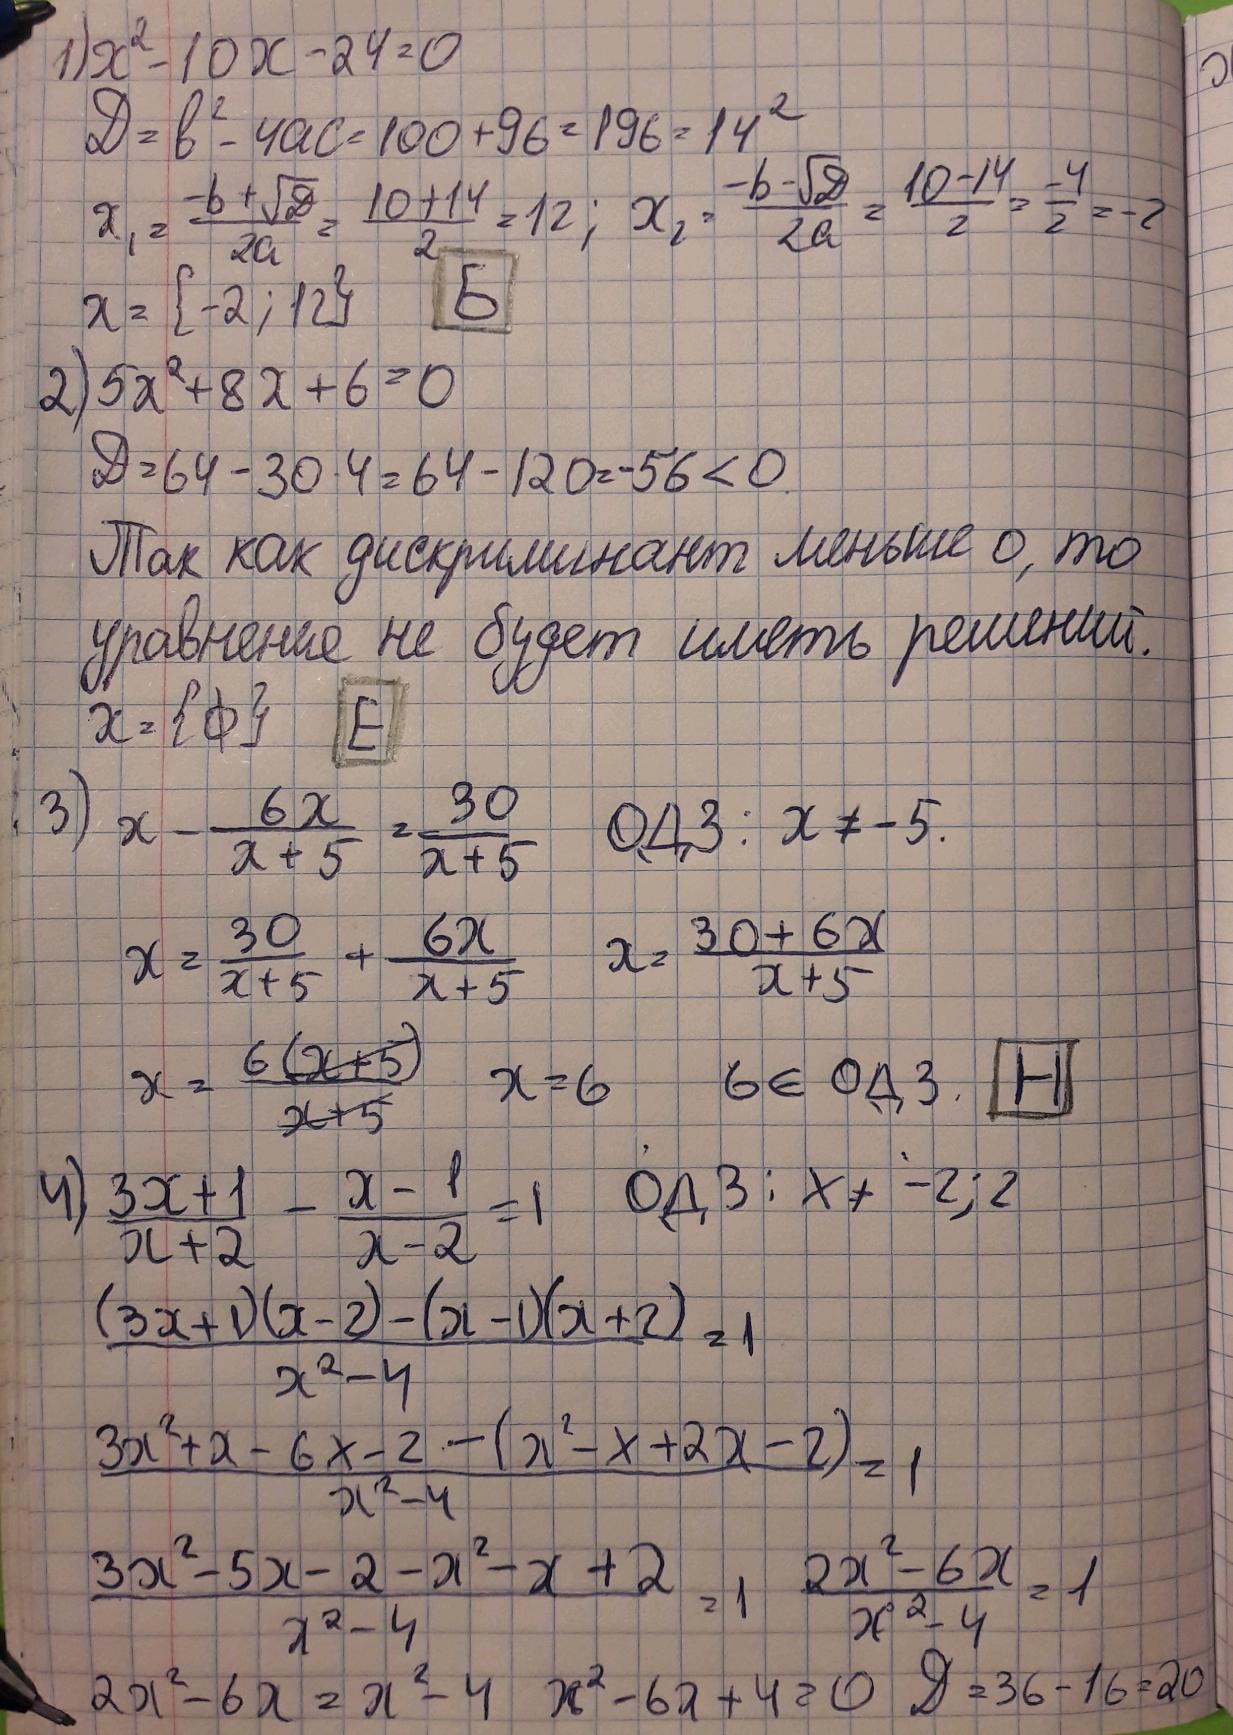 1) x² - 10x - 24 = 0
D = b² - 4ac = 100 + 96 = 196 = 14²
x₁ = (-b + √D)/2a = (10+14)/2 = 12; x₂ = (-b - √D)/2a = (10-14)/2 = -4/2 = -2
x = {-2; 12} Б
2) 5x² + 8x + 6 = 0
D = 64 - 30·4 = 64 - 120 = -56 < 0.
Так как дискриминант меньше 0, то
уравнение не будет иметь решений.
x = {ф} Е
3) x - 6x/(x+5) = 30/(x+5) ОДЗ: x ≠ -5.
x = 30/(x+5) + 6x/(x+5) x = (30+6x)/(x+5)
x = 6(x+5)/(x+5) x = 6 6 ∈ ОДЗ. Н
4) (3x+1)/(x+2) - (x-1)/(x-2) = 1 ОДЗ: x ≠ -2; 2
((3x+1)(x-2) - (x-1)(x+2))/(x²-4) = 1
(3x² + x - 6x - 2 - (x² - x + 2x - 2))/(x²-4) = 1
(3x² - 5x - 2 - x² - x + 2)/(x²-4) = 1 (2x² - 6x)/(x²-4) = 1
2x² - 6x = x² - 4 x² - 6x + 4 = 0 D = 36 - 16 = 20